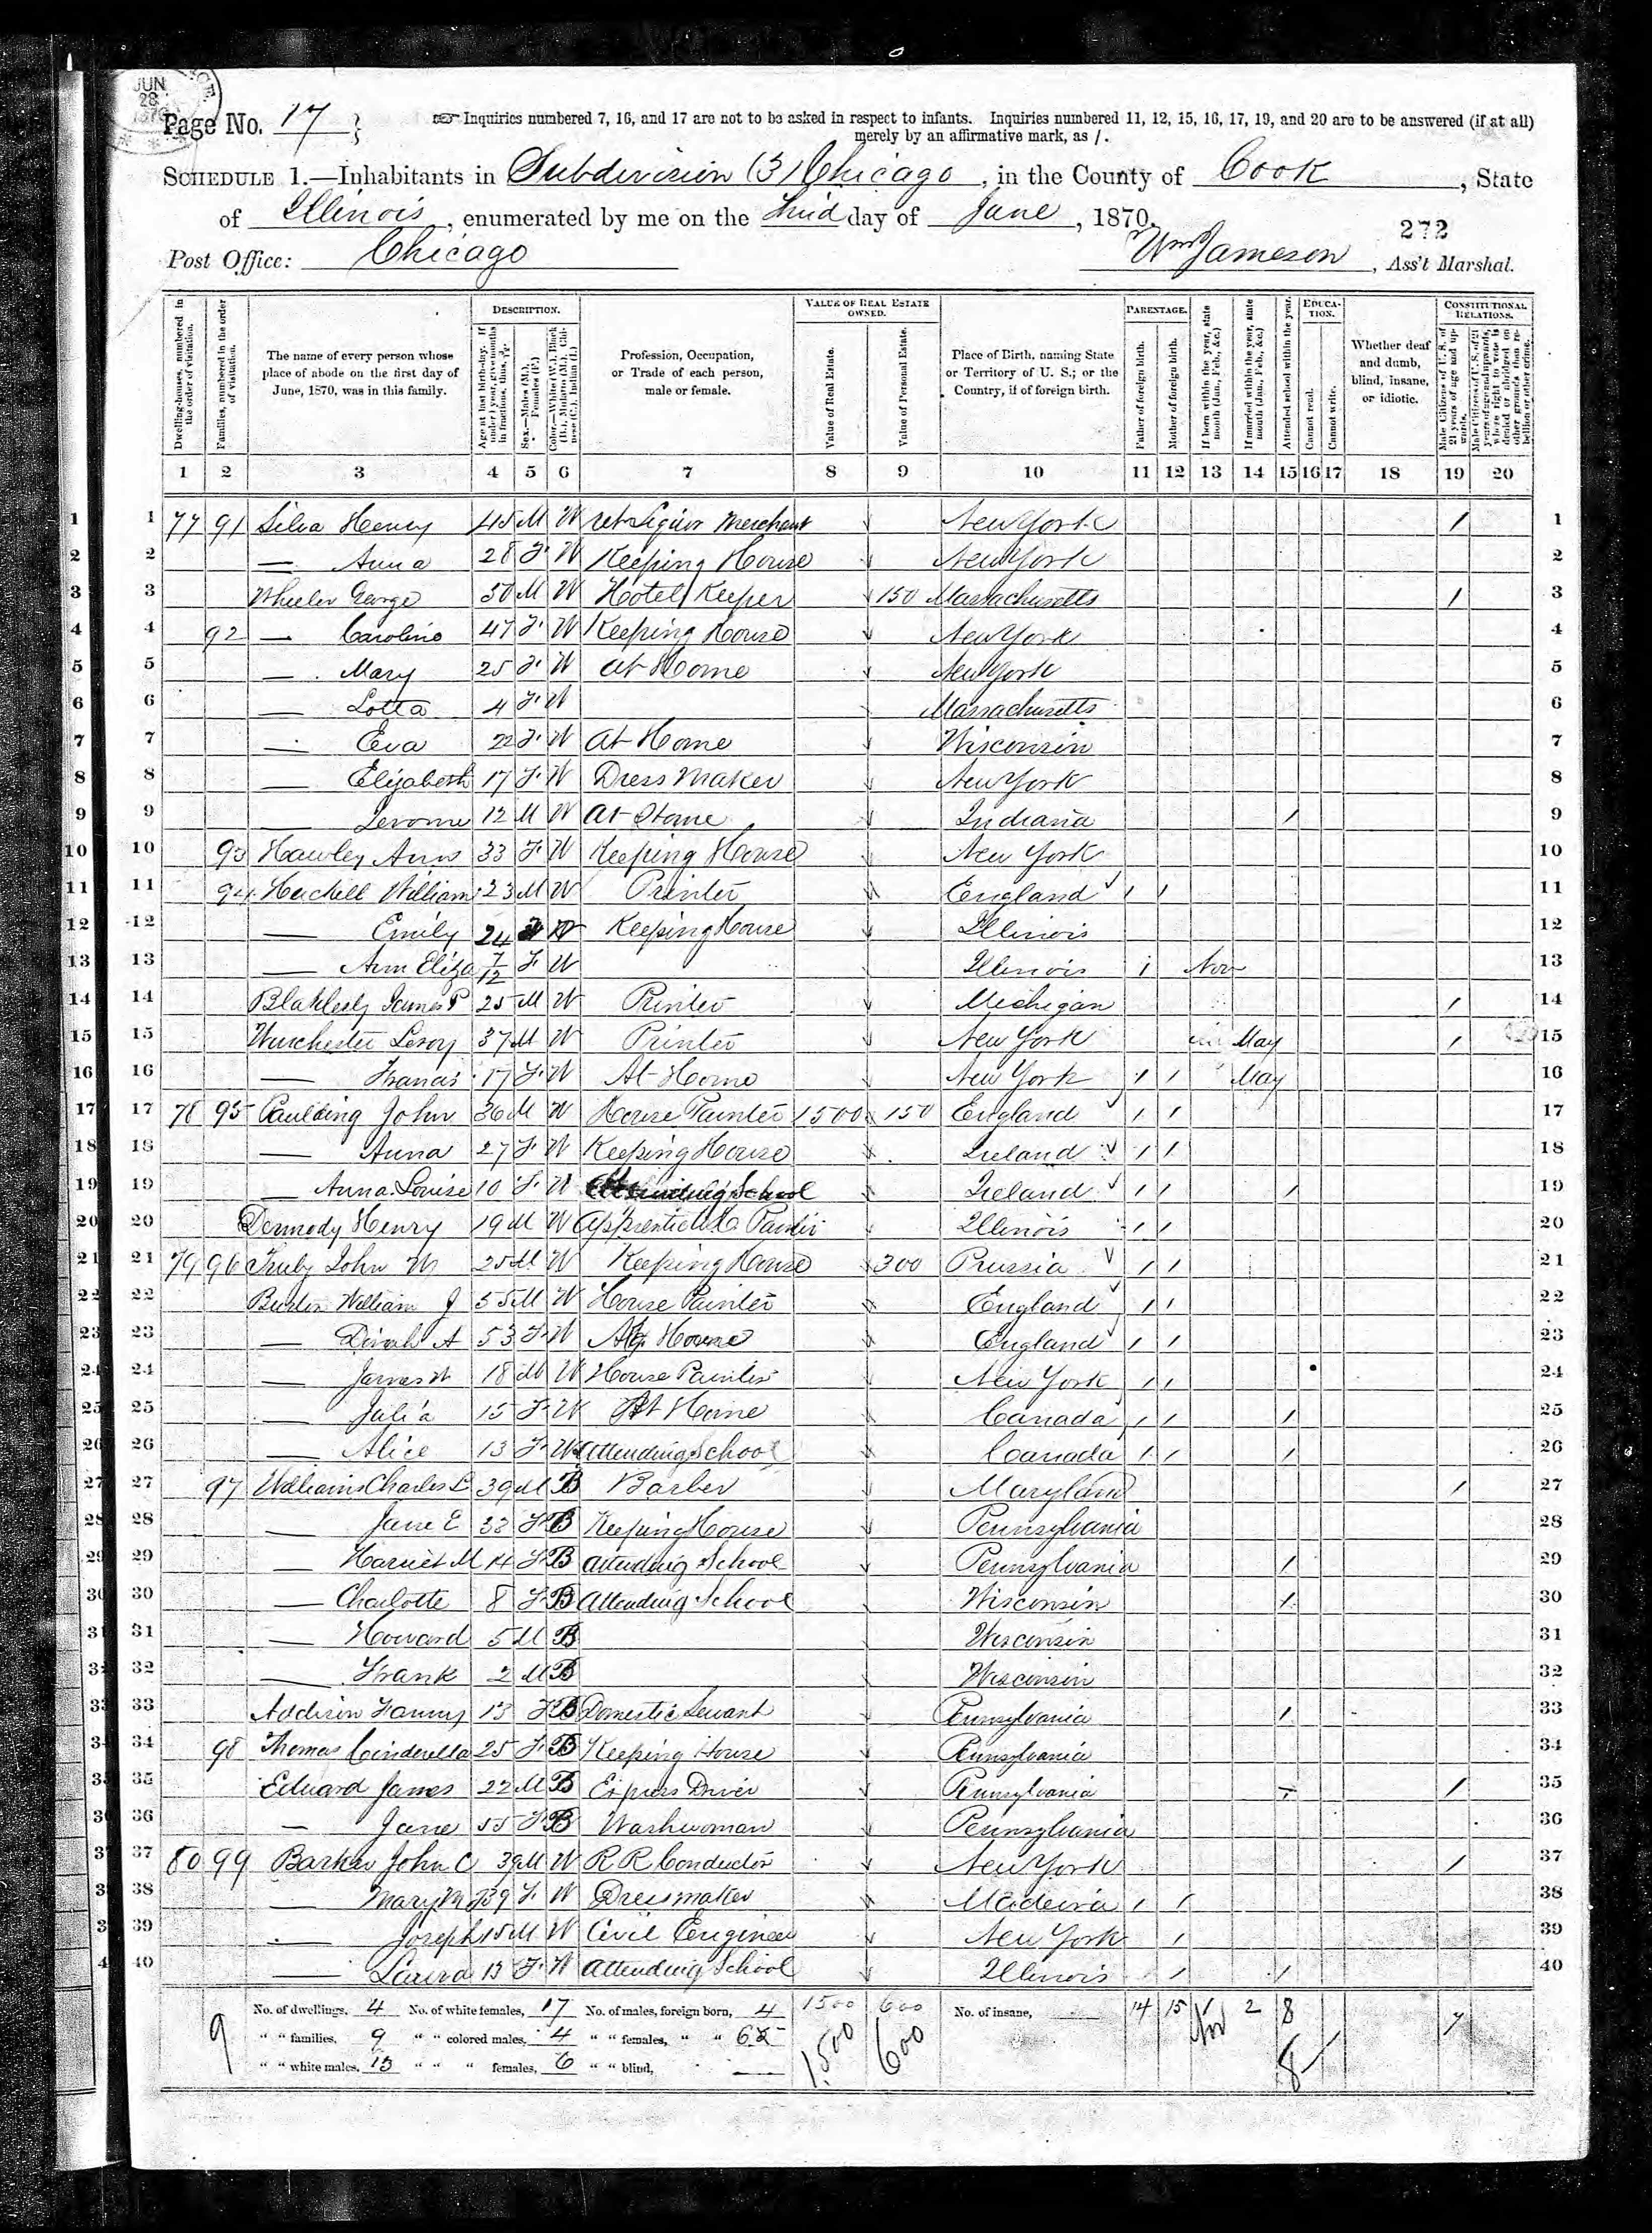 JUN
28
Page No. 17 }
Inquiries numbered 7, 16, and 17 are not to be asked in respect to infants. Inquiries numbered 11, 12, 15, 16, 17, 19, and 20 are to be answered (if at all)
merely by an affirmative mark, as /.
SCHEDULE 1.—Inhabitants in Subdivision (3) Chicago, in the County of Cook, State
of Illinois, enumerated by me on the day of June, 1870.
272
Post Office: Chicago Wm Jameson, Ass't Marshal.
Dwelling-houses, numbered in the order of visitation.
Families, numbered in the order of visitation.
The name of every person whose place of abode on the first day of June, 1870, was in this family.
DESCRIPTION.
Age at last birth-day. If under 1 year, give months in fractions, thus,
Sex.—Males (M.), Females (F.)
Color.—White (W.), Black (B.), Mulatto (M.), Chinese (C.), Indian (I.)
Profession, Occupation, or Trade of each person, male or female.
VALUE OF REAL ESTATE OWNED.
Value of Real Estate.
Value of Personal Estate.
Place of Birth, naming State or Territory of U. S.; or the Country, if of foreign birth.
PARENTAGE.
Father of foreign birth.
Mother of foreign birth.
If born within the year, state month (Jan., Feb., &c.)
If married within the year, state month (Jan., Feb., &c.)
Attended school within the year.
EDUCATION.
Cannot read.
Cannot write.
Whether deaf and dumb, blind, insane, or idiotic.
CONSTITUTIONAL RELATIONS.
Male Citizens of U. S. of 21 years of age and upwards.
Male Citizens of U. S. of 21 years of age and upwards, whose right to vote is denied or abridged on other grounds than rebellion or other crime.
1 2 3 4 5 6 7 8 9 10 11 12 13 14 15 16 17 18 19 20
1 77 91 Silva Henry 45 M W Liquor Merchant New York / 1
2 — Anna 28 F W Keeping House New York 2
3 Wheeler George 50 M W Hotel Keeper 150 Massachusetts / 3
4 92 — Caroline 47 F W Keeping House New York 4
5 — Mary 25 F W At Home New York 5
6 — Lotta 4 F W Massachusetts 6
7 — Eva 22 F W At Home Wisconsin 7
8 — Elizabeth 17 F W Dress Maker New York 8
9 — Jerome 12 M W At Home Indiana / 9
10 93 Hawley Ann 33 F W Keeping House New York 10
11 94 William 23 M W Printer England / / 11
12 — Emily 24 F W Keeping House Illinois 12
13 — Ann Eliza 7/12 F W Illinois / Nov 13
14 James P 25 M W Printer Michigan / 14
15 Winchester Leroy 37 M W Printer New York May / 15
16 — Frances 17 F W At Home New York / / May 16
17 78 95 Paulding John 36 M W House Painter 1500 150 England / / 17
18 — Anna 27 F W Keeping House Ireland / / 18
19 — Anna Louise 10 F W Attending School Ireland / / / 19
20 Dennedy Henry 19 M W Apprentice to Painter Illinois / / 20
21 79 96 Truby John M 25 M W Keeping House 300 Prussia / / 21
22 William J 55 M W House Painter England / / 22
23 — Dinah A 53 F W House England / / 23
24 — James W 18 M W House Painter New York / / 24
25 — Julia 15 F W At Home Canada / / / 25
26 — Alice 13 F W Attending School Canada / / / 26
27 97 Williams Charles L 39 M B Barber Maryland / 27
28 — Jane E 33 F B Keeping House Pennsylvania 28
29 — Harriet M 14 F B Attending School Pennsylvania / 29
30 — Charlotte 8 F B Attending School Wisconsin / 30
31 — Howard 5 M B Wisconsin 31
32 — Frank 2 M B Wisconsin 32
33 Addison Fanny 13 F B Domestic Servant Pennsylvania / 33
34 98 Thomas Cinderella 25 F B Keeping House Pennsylvania 34
35 Edward James 22 M B Express Driver Pennsylvania / 35
36 — Jane 55 F B Washwoman Pennsylvania 36
37 80 99 Barker John C 39 M W R R Conductor New York / 37
38 — Mary M 39 F W Dressmaker Madeira / / 38
39 — Joseph 15 M W Civil Engineer New York / 39
40 — Laura 13 F W Attending School Illinois / / 40
No. of dwellings, 4 No. of white females, 17 No. of males, foreign born, 4 1500 600 No. of insane, 14 15 2 8 7
" " families, 9 " " colored males, 4 " " females, " " 6
" " white males, 13 " " " females, 6 " " blind,
9 1,500 600 8